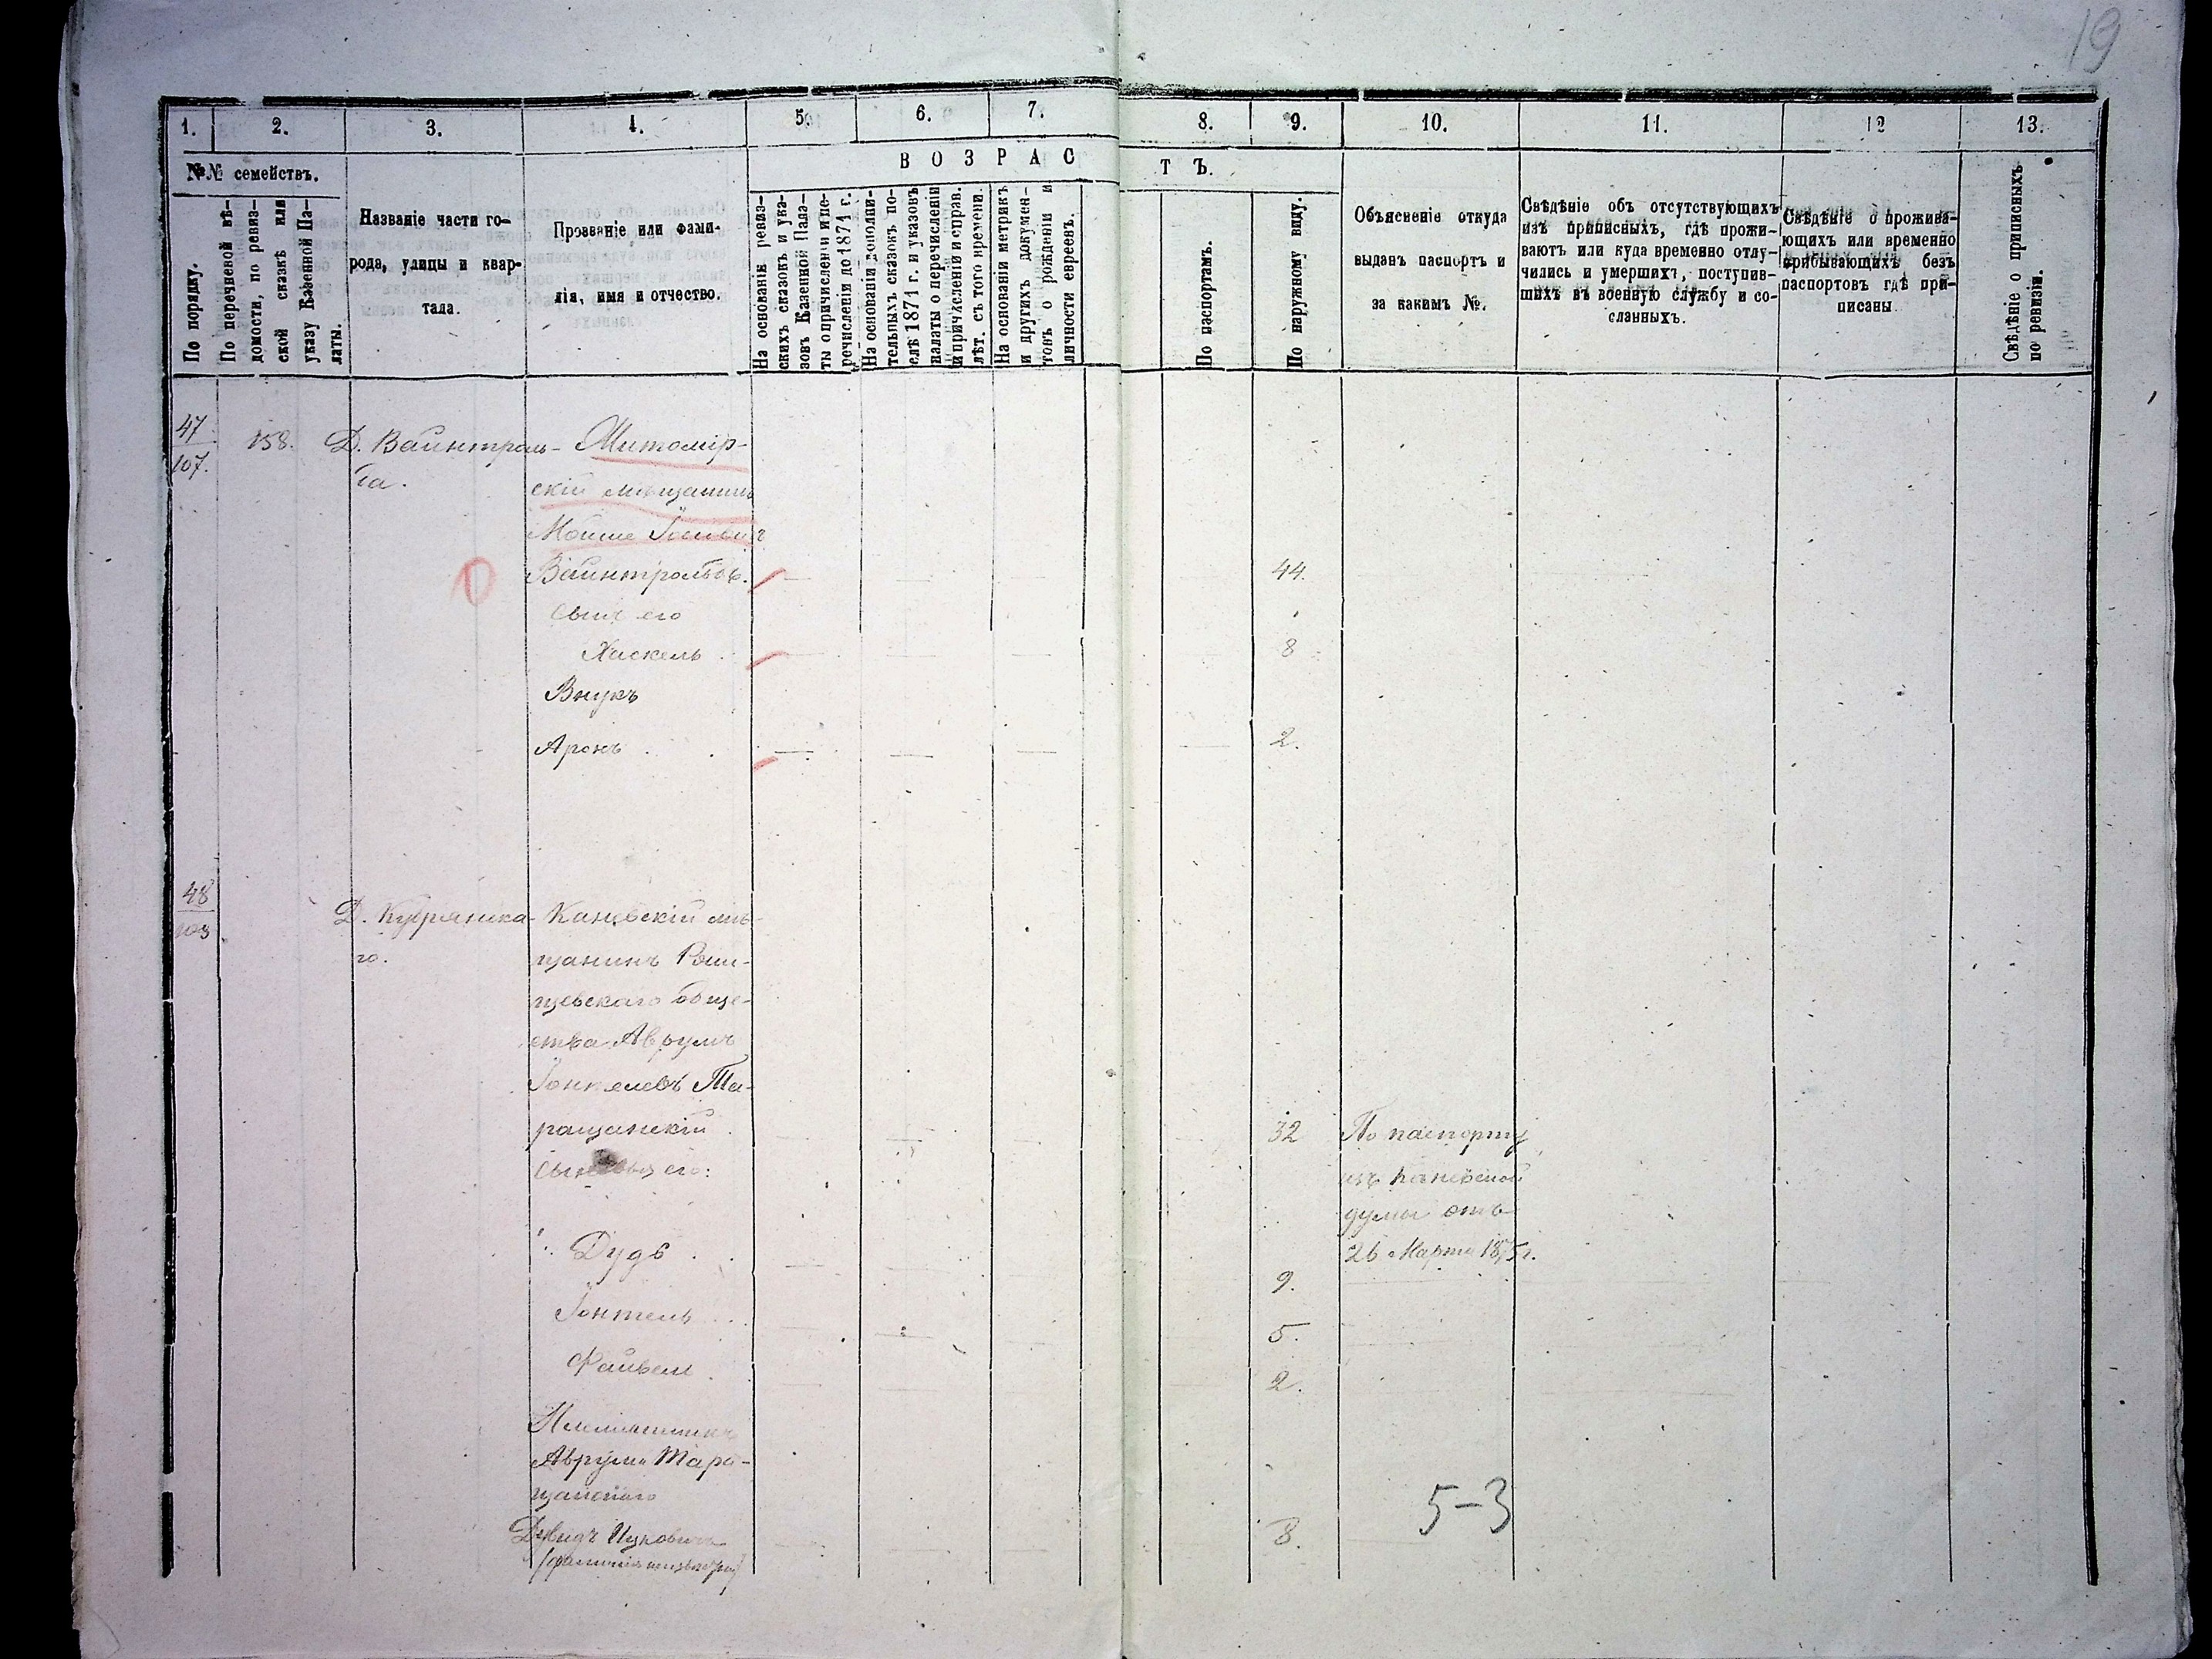 19
1. 2. 3. 4. 5. 6. 7. 8. 9. 10. 11. 12 13.
№№ семействъ.
В О З Р А С Т Ъ.
По порядку.
По перечневой вѣ-
домости, по ревиз-
ской сказкѣ или
указу Казенной Па-
латы.
Названіе части го-
рода, улицы и квар-
тала.
Прозваніе или фами-
лія, имя и отчество.
На основаніи ревиз-
скихъ сказокъ и ука-
зовъ Казенной Пала-
ты о причисленіи и пе-
речисленіи до 1871 г.
На основаніи дополни-
тельныхъ сказокъ по-
слѣ 1871 г. и указовъ
палаты о перечисленіи
и причисленіи и справ.
лѣт. съ того времени.
На основаніи метрикъ
и другихъ докумен-
товъ о рожденіи и
личности евреевъ.
По паспортамъ.
По наружному виду.
Объясненіе откуда
выданъ паспортъ и
за какимъ №.
Свѣдѣніе объ отсутствующихъ
изъ приписныхъ, гдѣ прожи-
ваютъ или куда временно отлу-
чились и умершихъ, поступив-
шихъ въ военную службу и со-
сланныхъ.
Свѣдѣніе о прожива-
ющихъ или временно
прибывающихъ безъ
паспортовъ гдѣ при-
писаны
Свѣдѣніе о приписныхъ
по ревизіи.
47
107.
158.
Д. Вайнтроль-
ба.
Житомір-
скій мѣщанинъ
Мойше
Вайнтрольбъ. 44.
Сынъ его
Хаскель 8
Внукъ
Аронъ 2.
48
108
Д. Кубрянска-
го.
Каневскій мѣ-
щанинъ
обще-
ства Аврумъ
Іонкелевъ Та-
ращанскій 32
Сыновья его:
Дудь 9.
Іонтель 5.
Файвель 2.
По паспорту
изъ Каневской
думы отъ
26 Марта 1875 г.
Племянникъ
Аврума Тара-
щанскаго
Дувидъ Ицковичъ 8.
(фамилія неизвѣстна)
5-3